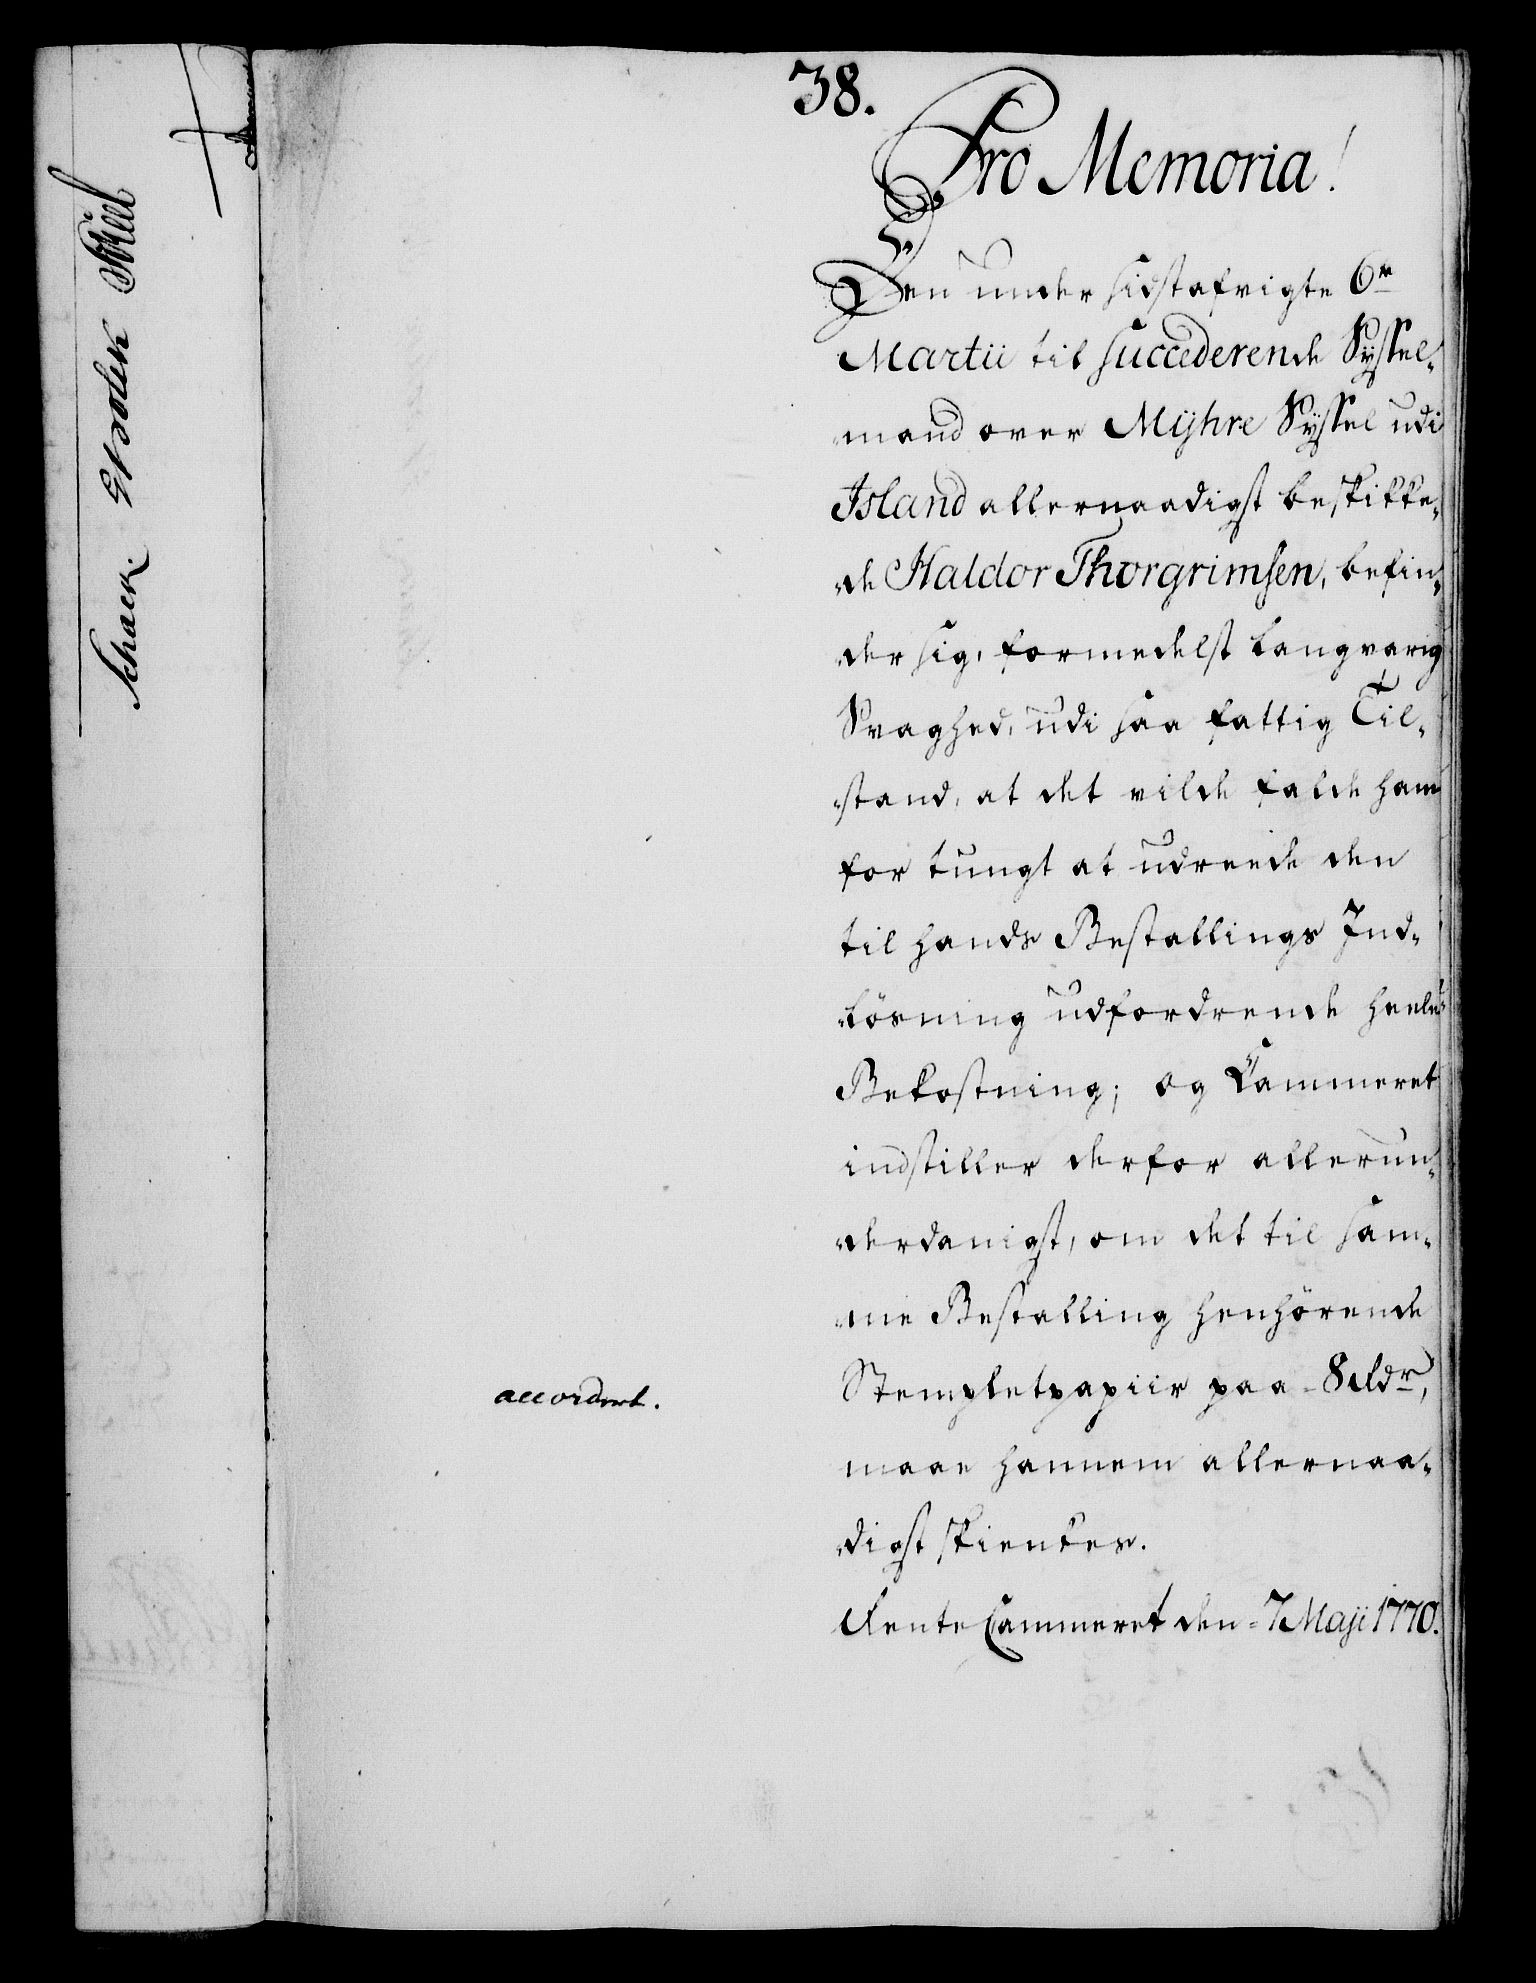 38.
Pro Memoria!
Den under sidstafvigte 6te
Martii til succederende Syssel-
mand over Mÿhre Syssel udi
Island allernaadigst beskikke-
de Haldor Thorgrimsen, befin-
der sig, formedelst langvarig
Svaghed, udi saa fattig Til-
stand, at det vilde falde ham
for tungt at udreede den
til hands Bestallings Ind-
lösning udfordrende heele
Bekostning; og Cammeret
indstiller derfor allerun-
derdanigst, om det til sam-
me Bestalling henhörende
Stempletpapiir paa 8 Rdr,
maae hannem allernaa-
digst skienkes.
RenteCammeret den 7 Maji 1770.
accordert.
Schack